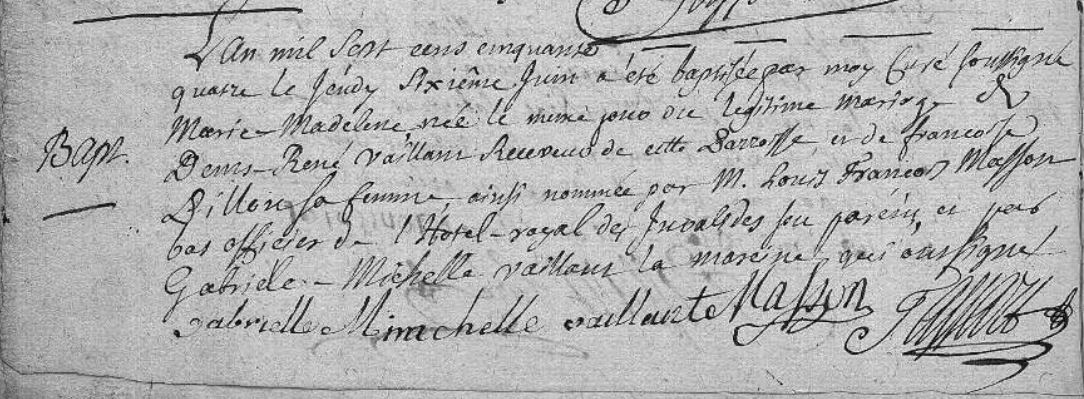 L'An mil sept cens cinquante
quatre le Jeudy sixième Juin a été baptisée par moy Curé soussigné
Bapt.
Marie-Madelene née le même jour du legitime mariage de
Denis-René Vaillant Receveur de cette Parroisse, et de Francoise
Dillon sa femme, ainsi nommée par M. Louis Francois Masson
bas officier de l'Hotel-royal des Invalides son parein, et par
Gabriele-Michelle Vaillant la mareine, qui ont signé
gabrielle Mimchelle vaillant Masson